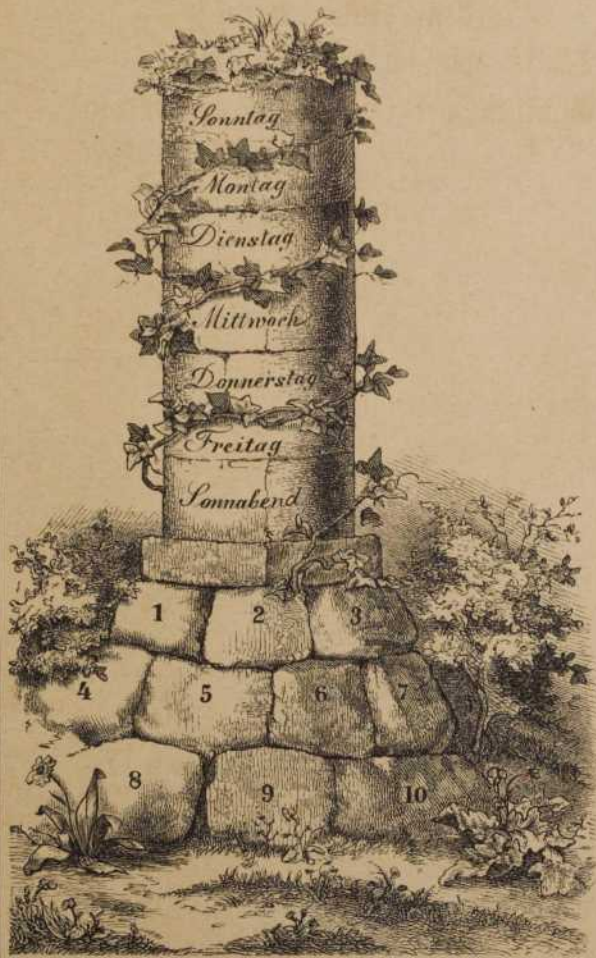 Sonntag
Montag
Dienstag
Mittwoch
Donnerstag
Freitag
Sonnabend
1 2 3
4 5 6 7
8 9 10